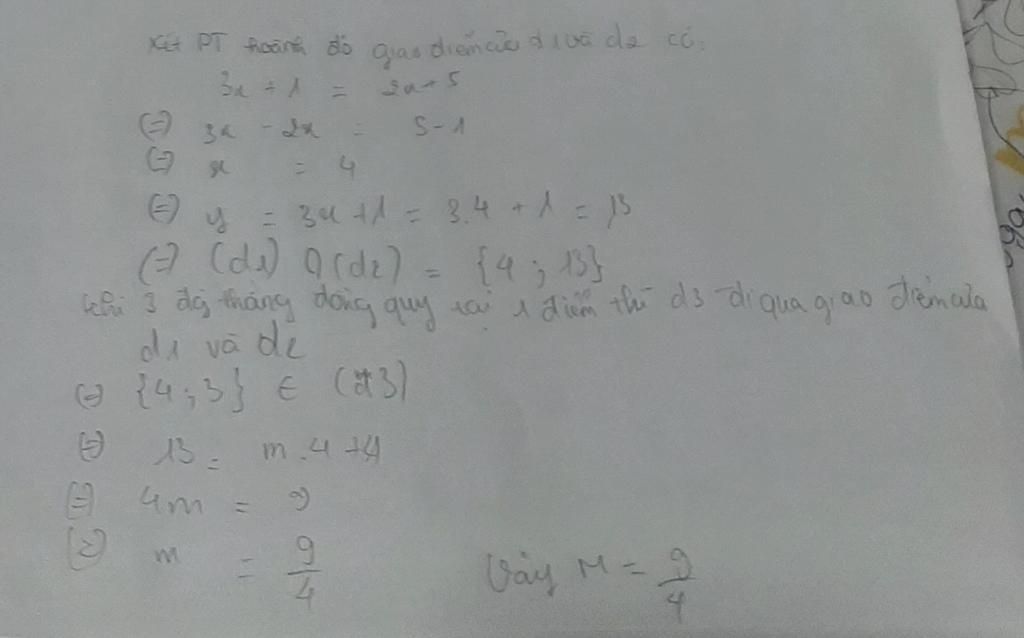 Xét PT hoành độ giao điểm của d1 và d2 có:
3x + 1 = 2x + 5
(=) 3x - 2x = 5 - 1
(=) x = 4
(=) y = 3x + 1 = 3.4 + 1 = 13
(=) (d1) ∩ (d2) = {4 ; 13}
khi 3 đg thẳng đồng quy tại 1 điểm thì d3 đi qua giao điểm của
d1 và d2
(=) {4 ; 3} ∈ (d3)
(=) 13 = m.4 + 4
(=) 4m = 9
(=) m = 9/4 Vậy M = 9/4